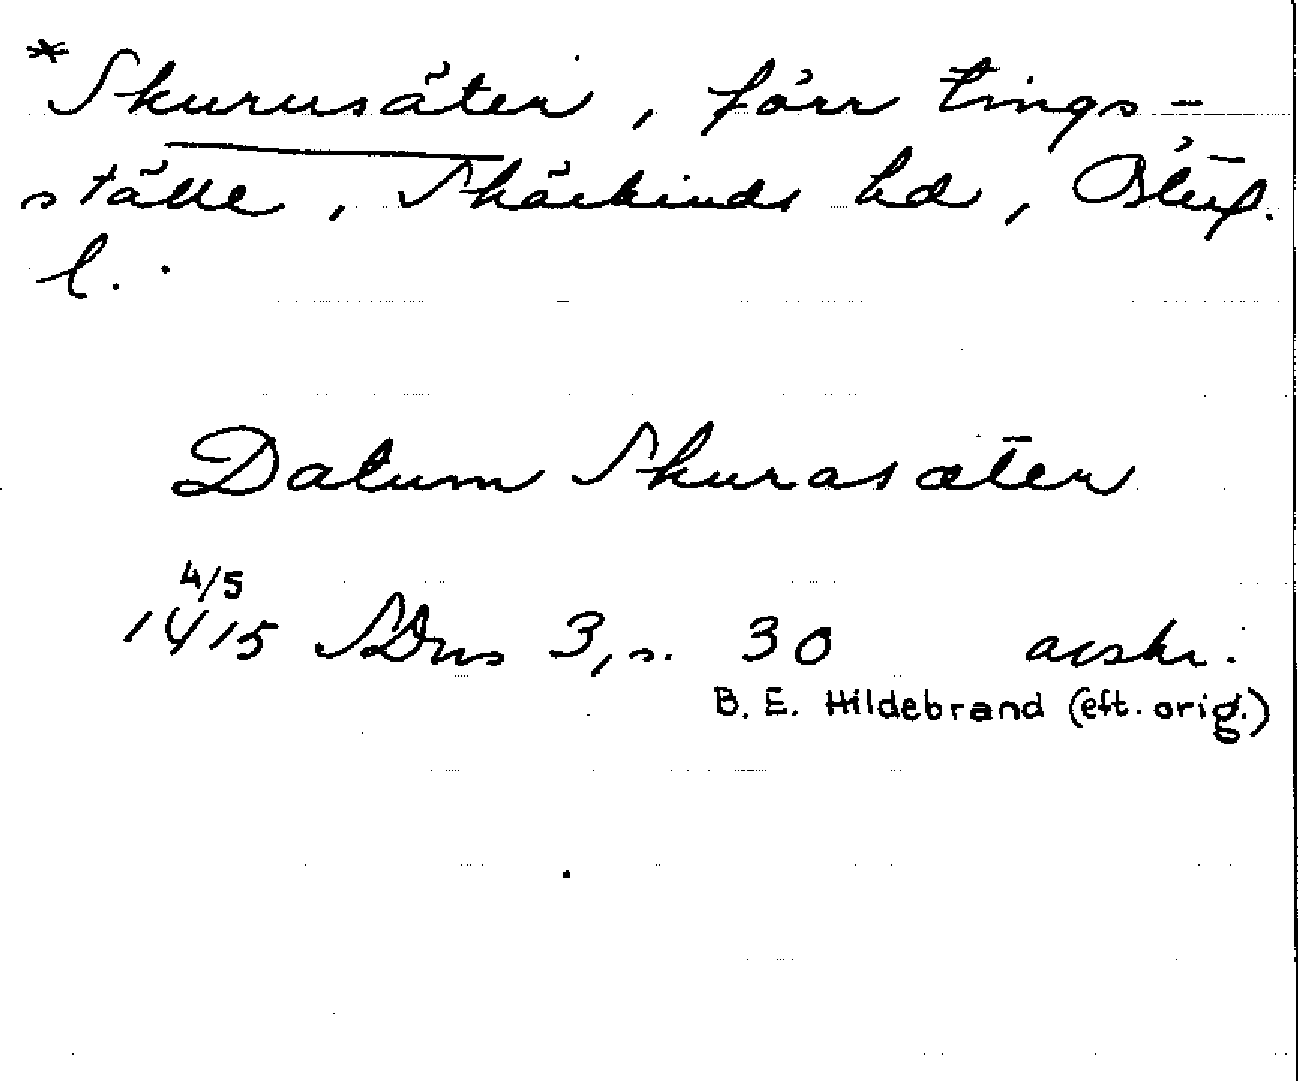 *Skurusäter, förr tings-
ställe, Skärkinds hd, Östg.
l.
Datum Skurasæter
4/5
1415 SDns 3, s. 30 avskr.
B. E. Hildebrand (eft. orig.)